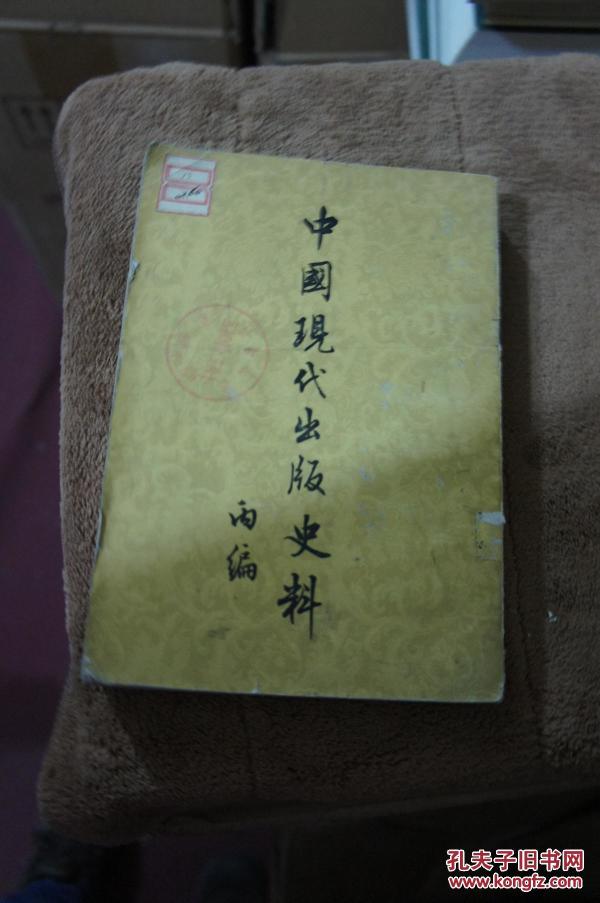 中國現代出版史料
丙編
孔夫子旧书网
www.kongfz.com